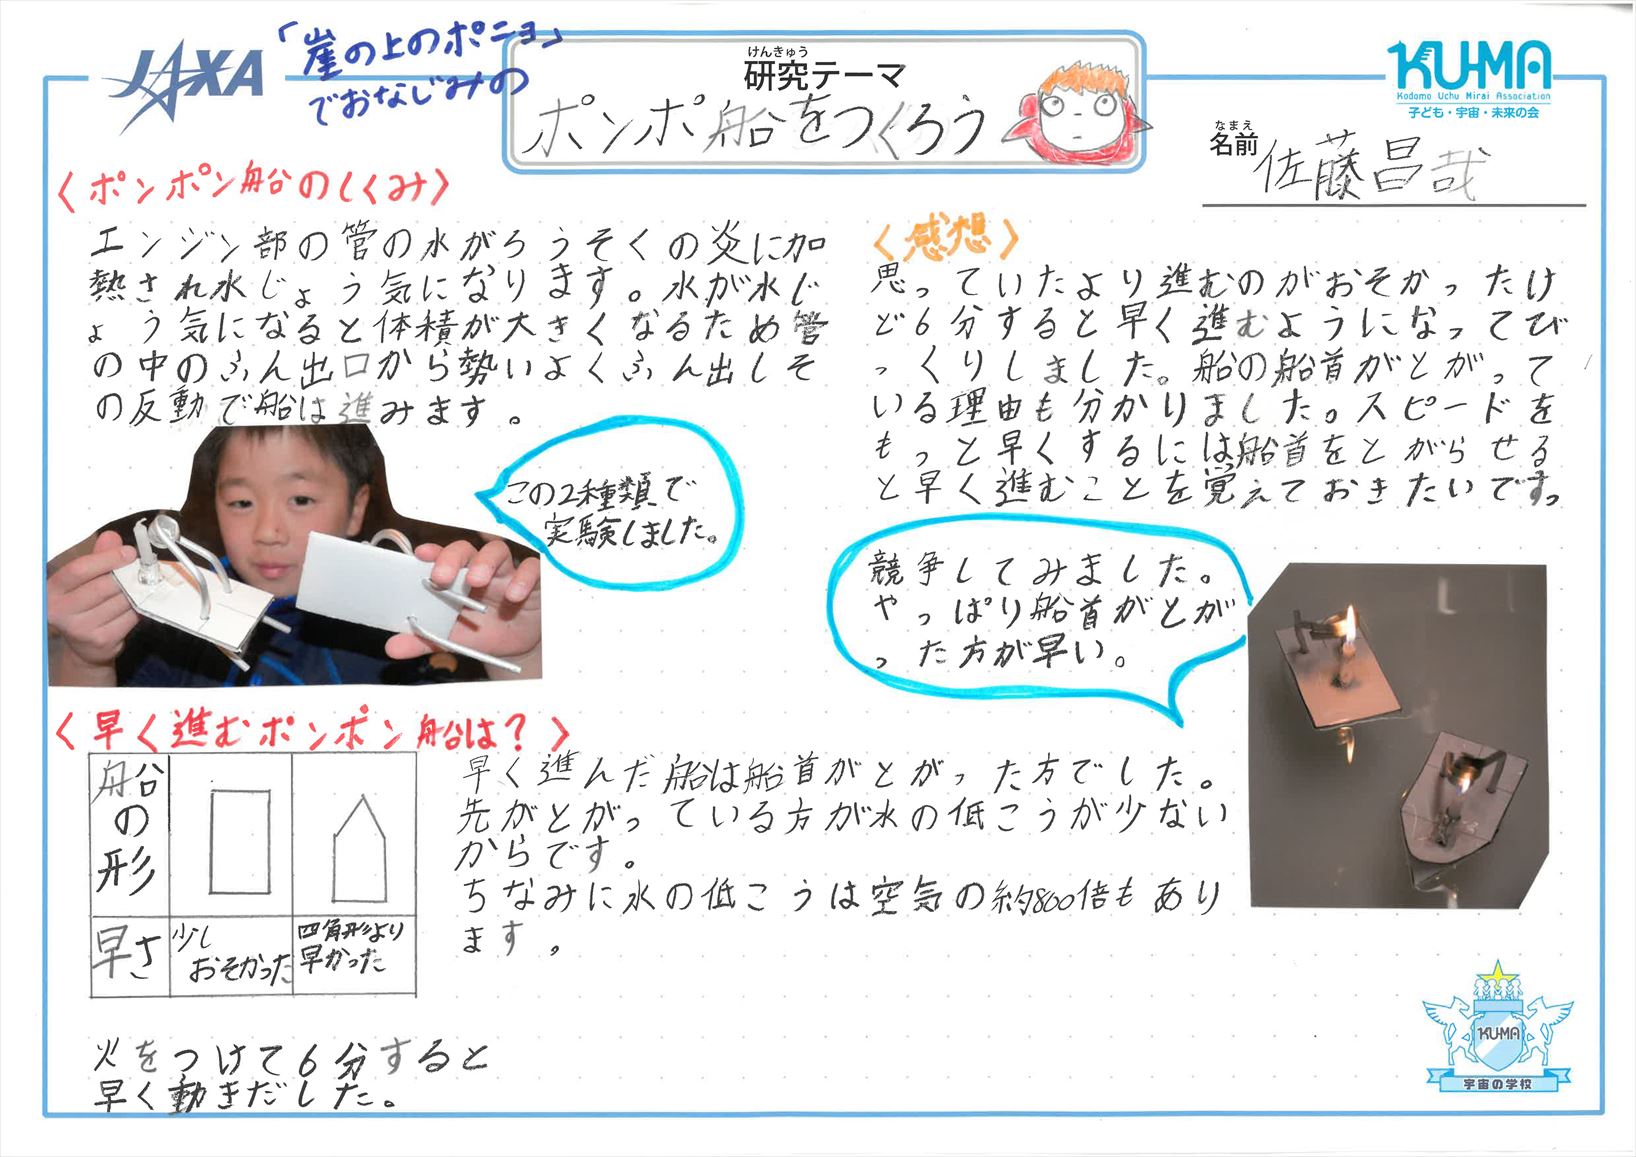 JAXA
「崖の上のポニョ」
でおなじみの
けんきゅう
研究テーマ
ポンポ船をつくろう
KU-MA
Kodomo Uchu Mirai Association
子ども・宇宙・未来の会
なまえ
名前
佐藤昌哉
〈ポンポン船のしくみ〉
エンジン部の管の水がろうそくの炎に加
熱され水じょう気になります。水が水じ
ょう気になると体積が大きくなるため管
の中のふん出口から勢いよくふん出しそ
の反動で船は進みます。
この2種類で
実験しました。
〈早く進むポンポン船は?〉
船の形
早さ
少し
おそかった
四角形より
早かった
早く進んだ船は船首がとがった方でした。
先がとがっている方が水の低こうが少ない
からです。
ちなみに水の低こうは空気の約800倍もあり
ます。
火をつけて6分すると
早く動きだした。
〈感想〉
思っていたより進むのがおそかったけ
ど6分すると早く進むようになってび
っくりしました。船の船首がとがって
いる理由も分かりました。スピードを
もっと早くするには船首をとがらせる
と早く進むことを覚えておきたいです。
競争してみました。
やっぱり船首がとが
った方が早い。
KUMA
宇宙の学校